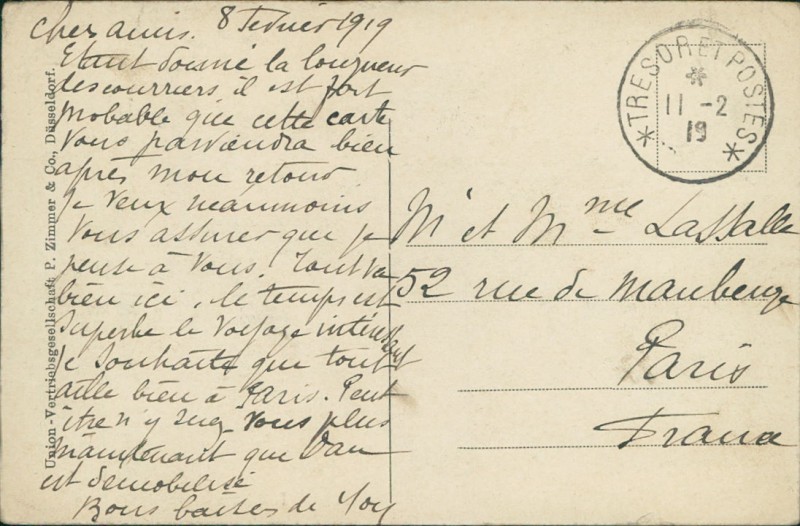 Chers amis. 8 Fevrier 1919
Etant donné la longueur
des courriers il est fort
probable que cette carte
vous parviendra bien
après mon retour
Je veux néanmoins
vous assurer que je
pense à vous. Tout va
bien ici, le temps est
superbe le voyage intéressant
Je souhaite que tout
aille bien à Paris. Peut
être n'y
vous plus
maintenant que
est demobilisé
Bons baisers de
Mr et Mme Lassalle
52 rue de Maubeuge
Paris
France
TRESOR ET POSTES
11 - 2
19
Union-Vertriebsgesellschaft P. Zimmer & Co., Düsseldorf.